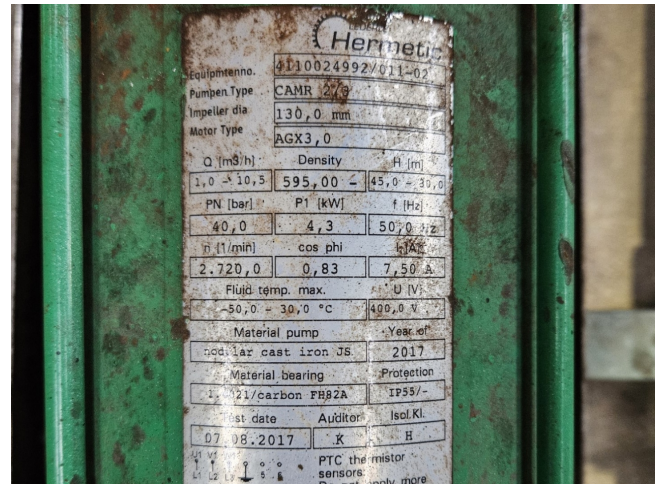 LEDERLE
Hermetic
Equipmtenno. 4110024992/011-02
Pumpen.Type CAMR 2/3
Impeller dia 130,0 mm
Motor Type AGX3,0
Q [m3/h] Density H [m]
1,0 - 10,5 595,00 - 45,0 - 30,0
PN [bar] P1 [kW] f [Hz]
40,0 4,3 50,0 Hz
n [1/min] cos phi I [A]
2.720,0 0,83 7,50 A
Fluid temp. max. U [V]
-50,0 - 30,0 °C 400,0 V
Material pump Year of
nodular cast iron JS 2017
Material bearing Protection
/carbon FH82A IP55/-
Test date Auditor Isol.Kl.
07.08.2017 K H
U1 V1
PTC thermistor
L1 L2 L3 5 6
sensors
Do not apply more